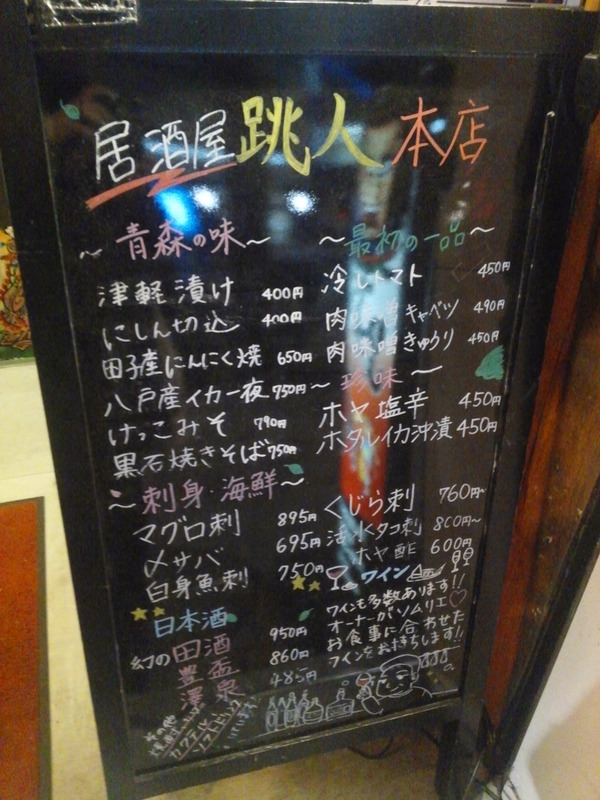 居酒屋跳人 本店
～青森の味～
津軽漬け 400円
にしん切込 400円
田子産にんにく焼 650円
八戸産イカ一夜 750円
けっこみそ 790円
黒石焼きそば 750円
～刺身・海鮮～
マグロ刺 895円
〆サバ 695円
白身魚刺 750円
日本酒
幻の田酒 950円
豊盃 860円
澤泉 485円
カクテル
ソフトドリンク
～最初の一品～
冷しトマト 450円
肉味噌キャベツ 490円
肉味噌きゅうり 450円
～珍味～
ホヤ塩辛 450円
ホタルイカ沖漬 450円
くじら刺 760円~
活水タコ刺 800円~
ホヤ酢 600円
ワイン
ワインも多数あります!!
オーナーがソムリエ♡
お食事に合わせた
ワインをお持ちします!!